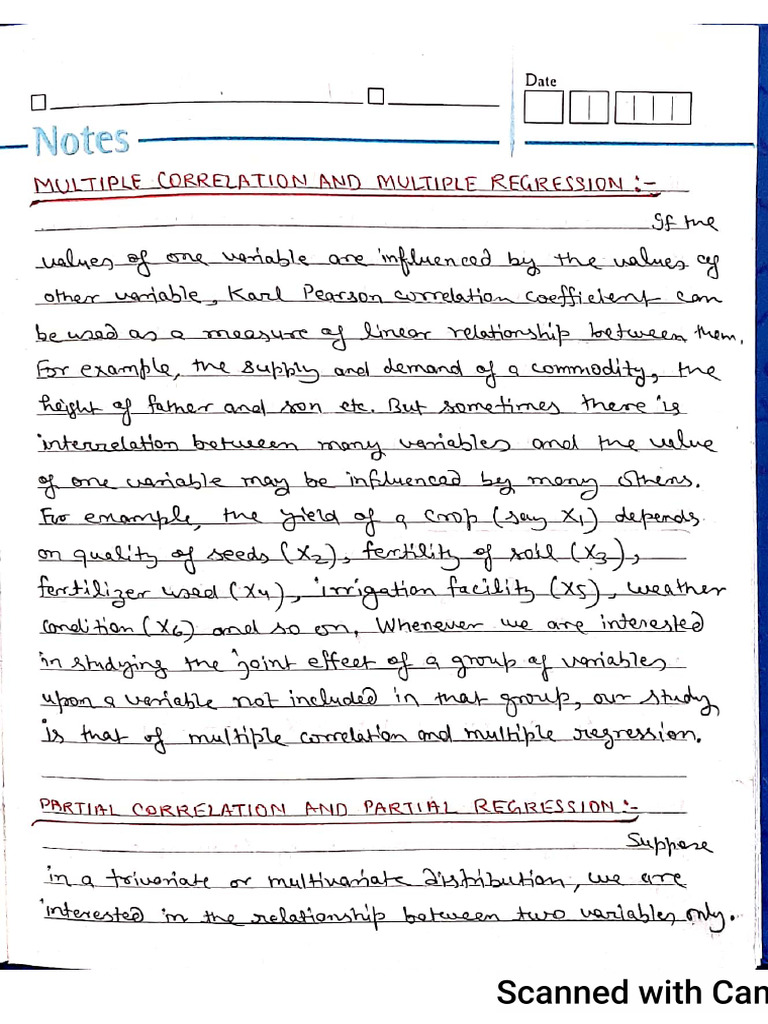 Date
Notes
MULTIPLE CORRELATION AND MULTIPLE REGRESSION :-
If the
values of one variable are influenced by the values of
other variable, Karl Pearson correlation coefficient can
be used as a measure of linear relationship between them.
For example, the supply and demand of a commodity, the
height of father and son etc. But sometimes there is
interrelation between many variables and the value
of one variable may be influenced by many others.
For example, the yield of a crop (say X1) depends
on quality of seeds (X2), fertility of soil (X3),
fertilizer used (X4), irrigation facility (X5), weather
condition (X6) and so on. Whenever we are interested
in studying the joint effect of a group of variables
upon a variable not included in that group, our study
is that of multiple correlation and multiple regression.
PARTIAL CORRELATION AND PARTIAL REGRESSION :-
Suppose
in a trivariate or multivariate distribution, we are
interested in the relationship between two variables only.
Scanned with Cam